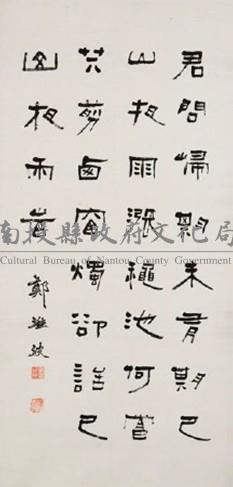 君問歸期未有期巴
山夜雨漲穐池何當
共剪西窗燭卻話巴
山夜雨時
鄭
南投縣政府文化局
Cultural Bureau of Nantou County Government